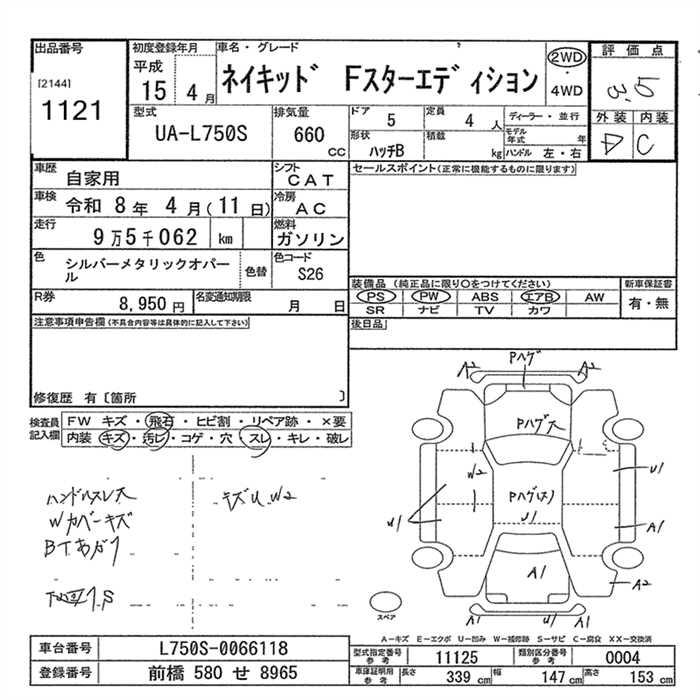 出品番号
[2144]
1121
初度登録年月
平成
15 4月
車名・グレード
ネイキッド Fスターエディション
2WD
・
4WD
評価点
3.5
外装 内装
D C
型式
UA-L750S
排気量
660
CC
ドア
5
定員
4 人
ディーラー・並行
形状
ハッチB
積載
kg
モデル年式 年
ハンドル 左・右
車歴
自家用
シフト
CAT
セールスポイント(正常に機能するものに限ります)
車検
令和 8年 4月(11日)
冷房
AC
走行
9万5千062 km
燃料
ガソリン
色
シルバーメタリックオパール
色替
色コード
S26
装備品 (純正品に限り〇をつけてください)
PS PW ABS エアB AW
SR ナビ TV カワ
新車保証書
有・無
R券
8,950 円
名変通知期限
月 日
後日品
注意事項申告欄(不具合内容等は具体的に記入して下さい)
修復歴 有〔箇所 〕
検査員記入欄
FW キズ・飛石・ヒビ割・リペア跡・×要
内装 キズ・汚レ・コゲ・穴・スレ・キレ・破レ
ハンドルスレ大
Wカバーキズ
キズU W2
A2
Pハゲ
A2
Pハゲ大
W2
U1
U1
Pハゲ(ス)
U1
A1
A1
A2
A1
U1
スペア
A-キズ E-エクボ U-凹み W-補修跡 S-サビ C-腐食 XX-交換済
車台番号
L750S-0066118
登録番号
前橋 580 せ 8965
型式指定番号 参考
11125
類別区分番号 参考
0004
車庫証明用 参考
長さ 339 cm
幅 147 cm
高さ 153 cm